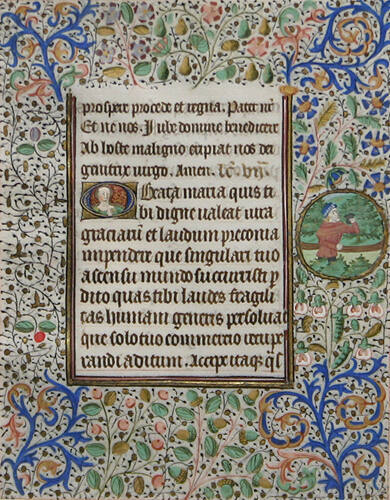 prospere procede et regna. Pater nr̄
Et ne nos. Jube domine benedicere
Ab hoste maligno eripiat nos dei
genitrix virgo. Amen. lc̄o
O Beata maria quis ti
bi digne valeat iura
graciarū et laudum preconia
impendere que singulari tuo
ascensu mundo succurristi p
dito quas tibi laudes fragili
tas humani generis persoluat
que solo tuo commercio recupe
randi aditum. Accipe itaqꝫ qͣs